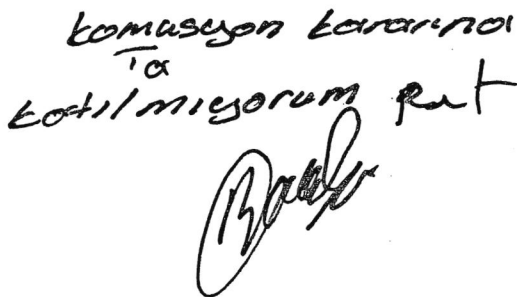 komasyon kararına
Ta
katılmıyorum Ret